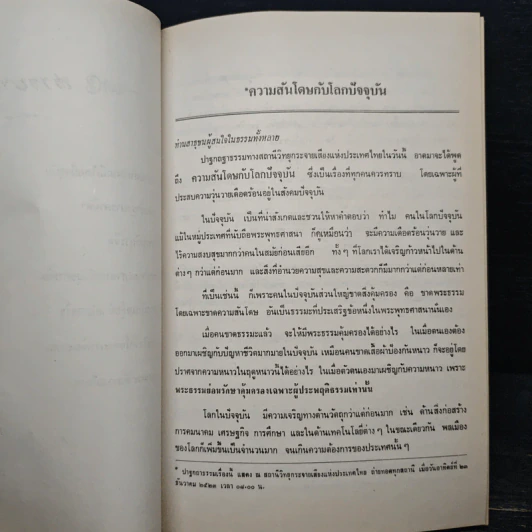 *ความสันโดษกับโลกปัจจุบัน
ท่านสาธุชนผู้สนใจในธรรมทั้งหลาย
ปาฐกถาธรรมทางสถานีวิทยุกระจายเสียงแห่งประเทศไทยในวันนี้ อาตมาจะได้พูด
ถึง ความสันโดษกับโลกปัจจุบัน ซึ่งเป็นเรื่องที่ทุกคนควรทราบ โดยเฉพาะผู้ที่
ประสบความวุ่นวายเดือดร้อนอยู่ในสังคมปัจจุบัน
ในปัจจุบัน เป็นที่น่าสังเกตและชวนให้หาคำตอบว่า ทำไม คนในโลกปัจจุบัน
แม้ในหมู่ประเทศที่นับถือพระพุทธศาสนา ก็ดูเหมือนว่า จะมีความเดือดร้อนวุ่นวาย และ
ไร้ความสงบสุขมากกว่าคนในสมัยก่อนเสียอีก ทั้ง ๆ ที่โลกเราได้เจริญก้าวหน้าไปในด้าน
ต่าง ๆ กว่าแต่ก่อนมาก และสิ่งที่อำนวยความสุขและความสะดวกก็มีมากกว่าแต่ก่อนหลายเท่า
ที่เป็นเช่นนี้ ก็เพราะคนในปัจจุบันส่วนใหญ่ขาดสิ่งคุ้มครอง คือ ขาดพระธรรม
โดยเฉพาะขาดความสันโดษ อันเป็นธรรมะที่ประเสริฐข้อหนึ่งในพระพุทธศาสนานั่นเอง
เมื่อคนขาดธรรมะแล้ว จะให้มีพระธรรมคุ้มครองได้อย่างไร ในเมื่อตนเองต้อง
ออกมาเผชิญกับปัญหาชีวิตมากมายในปัจจุบัน เหมือนคนขาดเสื้อผ้าป้องกันหนาว ก็จะอยู่โดย
ปราศจากความหนาวในฤดูหนาวนี้ได้อย่างไร ในเมื่อตัวตนเองมาเผชิญกับความหนาว เพราะ
พระธรรมย่อมรักษาคุ้มครองเฉพาะผู้ประพฤติธรรมเท่านั้น
โลกในปัจจุบัน มีความเจริญทางด้านวัตถุกว่าแต่ก่อนมาก เช่น ด้านสิ่งก่อสร้าง
การคมนาคม เศรษฐกิจ การศึกษา และในด้านเทคโนโลยีต่าง ๆ ในขณะเดียวกัน พลเมือง
ของโลกก็เพิ่มขึ้นเป็นจำนวนมาก จนเกินความต้องการของประเทศนั้น ๆ
* ปาฐกถาธรรมเรื่องนี้ แสดง ณ สถานีวิทยุกระจายเสียงแห่งประเทศไทย ถ่ายทอดทุกสถานี เมื่อวันอาทิตย์ที่
ธันวาคม ๒๕๒๑ เวลา ๐๘.๐๐ น.